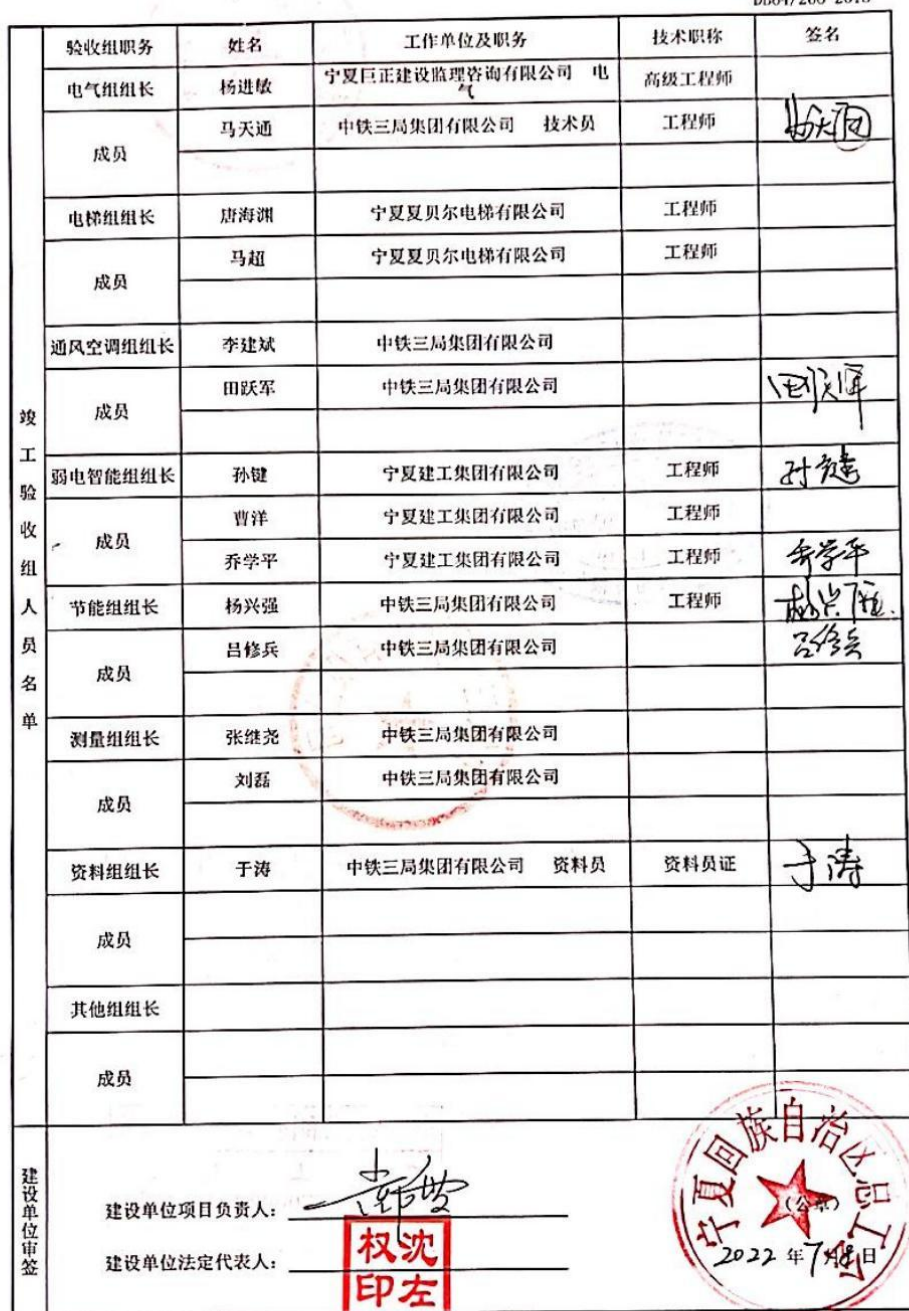 验收组职务 姓名 工作单位及职务 技术职称 签名
电气组组长 杨进敏 宁夏巨正建设监理咨询有限公司 电气 高级工程师
成员 马天通 中铁三局集团有限公司 技术员 工程师
电梯组组长 唐海渊 宁夏夏贝尔电梯有限公司 工程师
成员 马超 宁夏夏贝尔电梯有限公司 工程师
通风空调组组长 李建斌 中铁三局集团有限公司
成员 田跃军 中铁三局集团有限公司 田跃军
弱电智能组组长 孙键 宁夏建工集团有限公司 工程师 孙键
成员 曹洋 宁夏建工集团有限公司 工程师
乔学平 宁夏建工集团有限公司 工程师 乔学平
节能组组长 杨兴强 中铁三局集团有限公司 工程师 杨兴强
成员 吕修兵 中铁三局集团有限公司 吕修兵
测量组组长 张继尧 中铁三局集团有限公司
成员 刘磊 中铁三局集团有限公司
资料组组长 于涛 中铁三局集团有限公司 资料员 资料员证 于涛
成员
其他组组长
成员
竣工验收组人员名单
建设单位审签
建设单位项目负责人：
建设单位法定代表人：
权沈
印左
宁夏回族自治区总工会
（公章）
2022 年 7 月 8 日